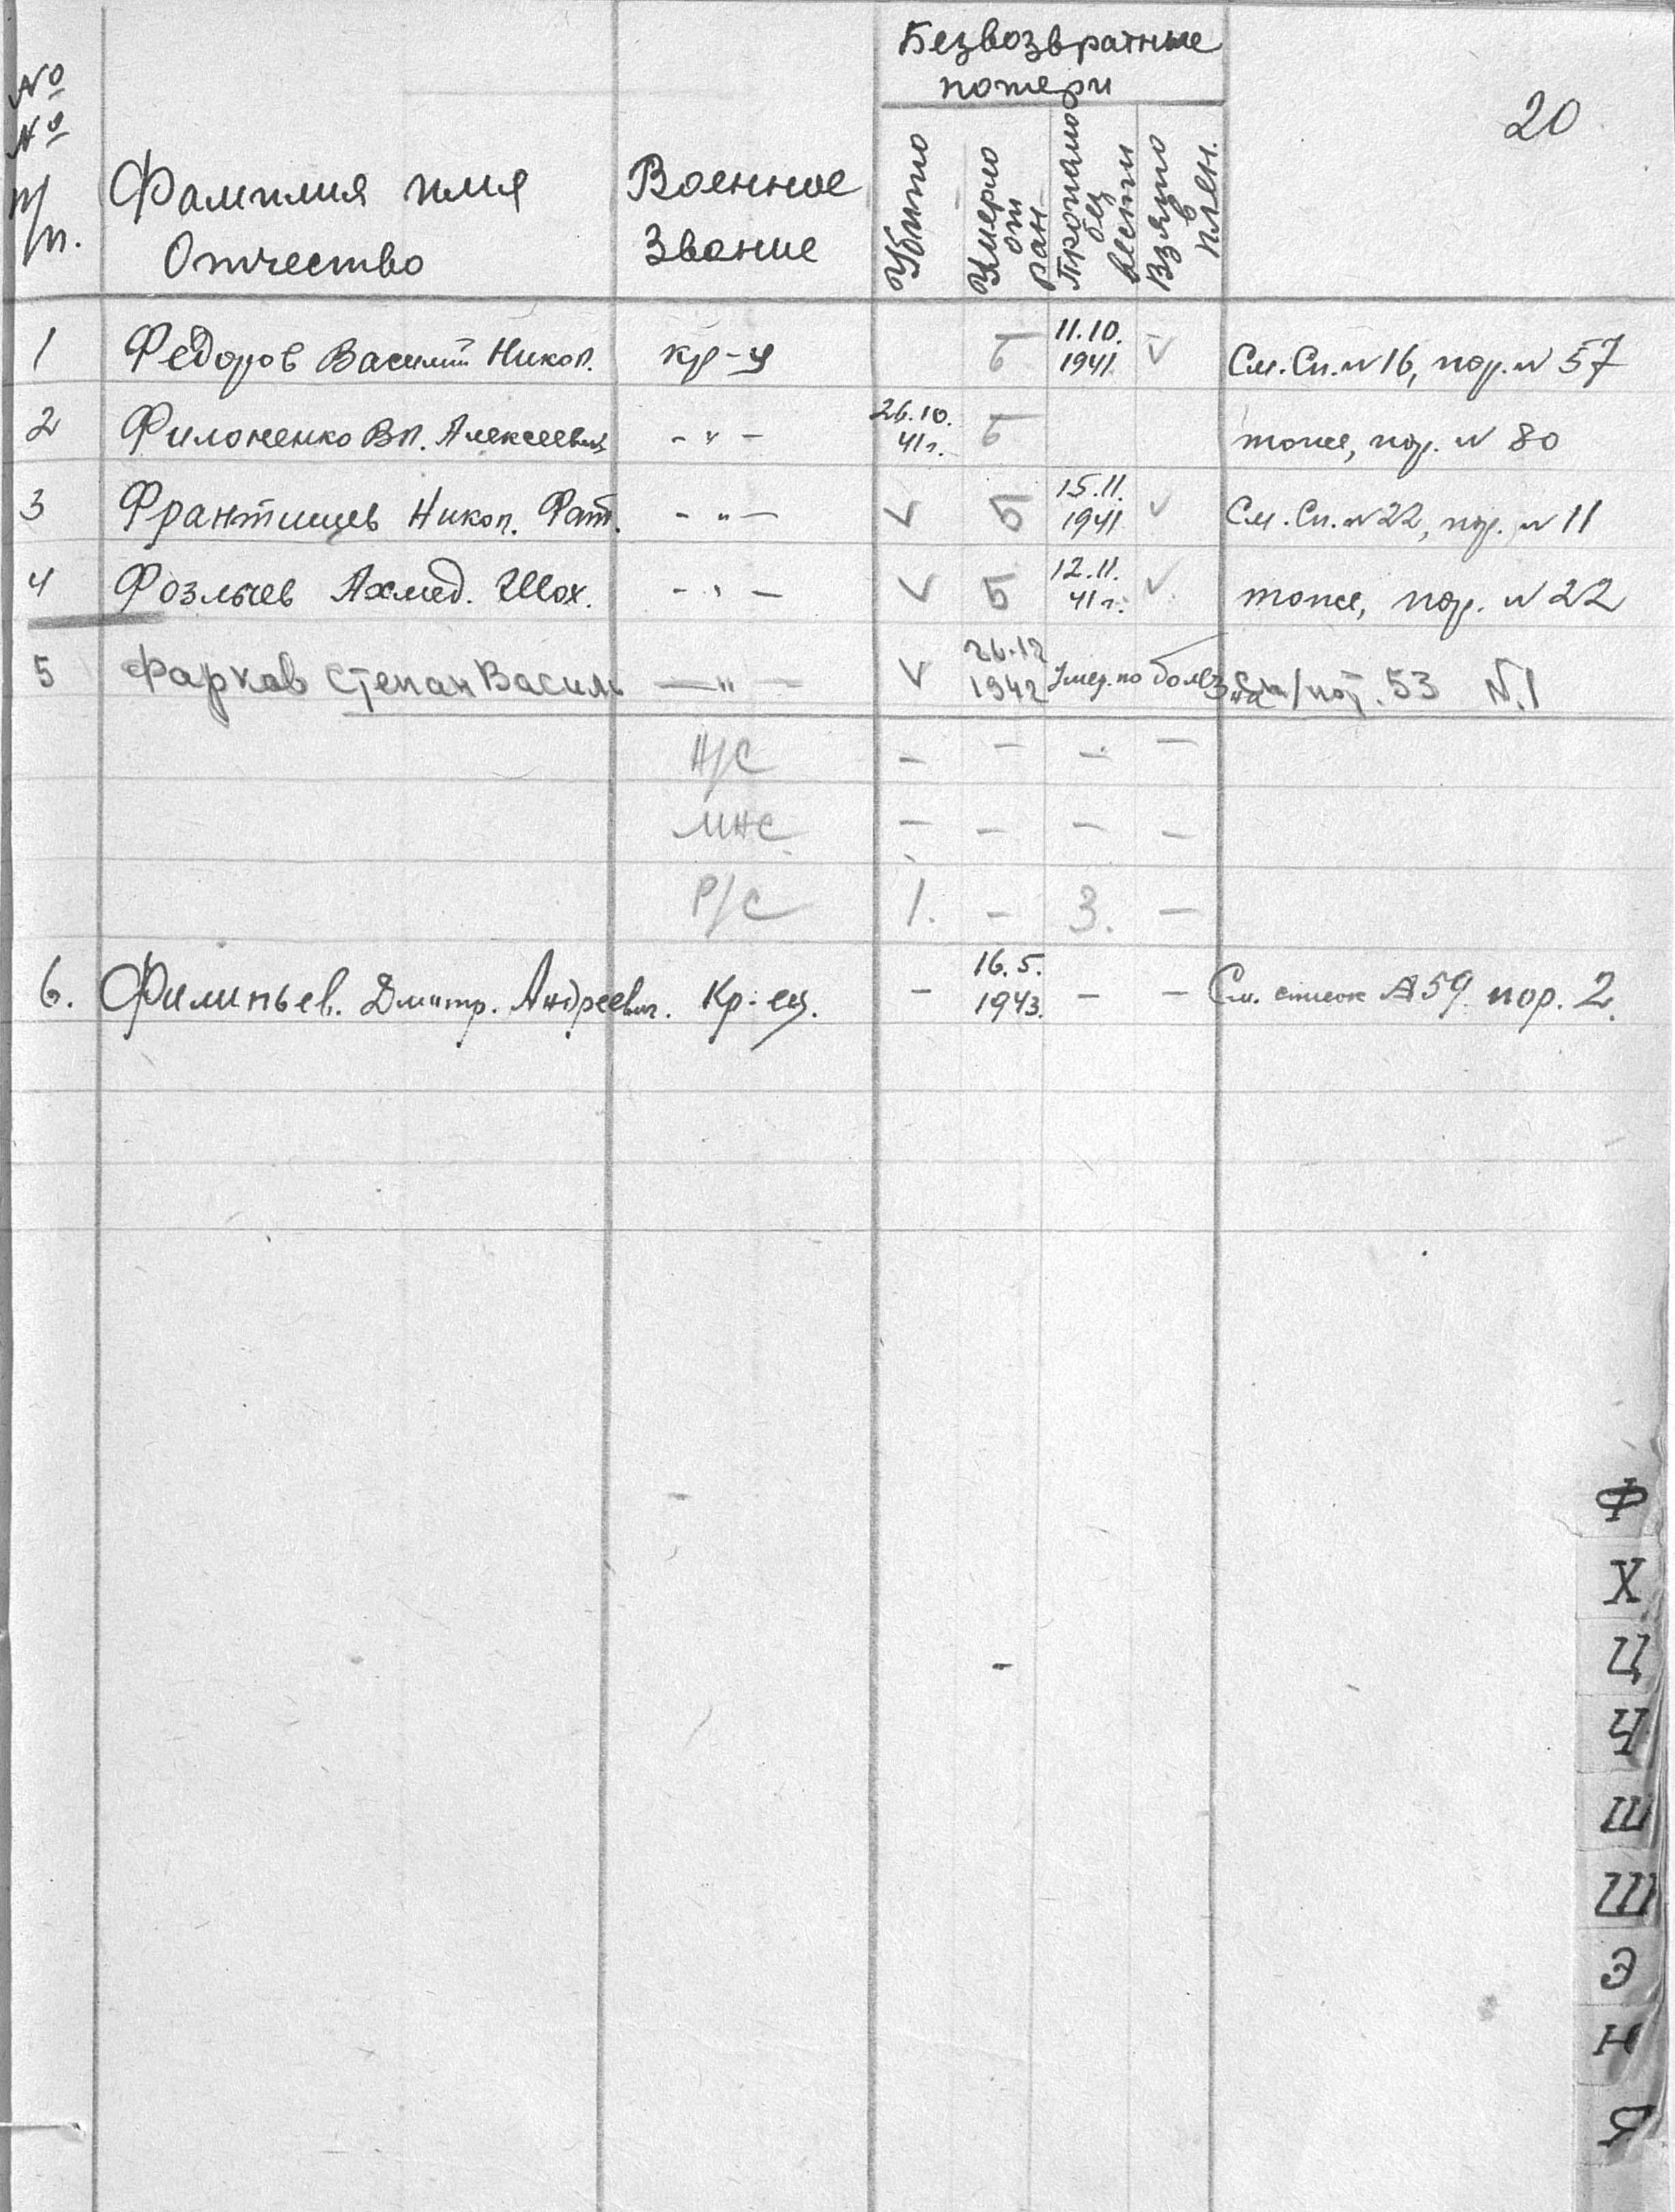 Безвозвратные
потери
20
№
№
п/
/п.
Фамилия имя
Отчество
Военное
Звание
Убито
Умерло
от
ран
Пропало
без
вести
Взято
в
плен.
1 Федоров Василий Никол. кр-ц Б 11.10. 1941 V См. Сп. № 16, пор. № 57
2 Филоненко Вл. Алексеевич - " - 26.10. 41 г. Б тоже, пор. № 80
3 Никол. Фат. - " - V Б 15.11. 1941 V См. Сп. № 22, пор. № 11
4 Ахмед. Шох. - " - V Б 12.11. 41 г. V тоже, пор. № 22
5 Фарков Степан Василь - " - V 26.12 1942 Умер. по болезни 53 N.1
Н/С - - - -
МНС - - - -
Р/С 1. - 3. -
6. Филипьев. Дмитр. Андреевич. Кр-ец. - 16.5. 1943. - - См. список 59 пор. 2.
Ф
Х
Ц
Ч
Ш
Щ
Э
Я